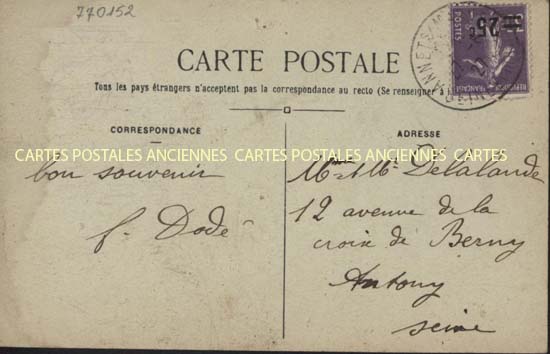 770152
CARTE POSTALE
Tous les pays étrangers n'acceptent pas la correspondance au recto (Se renseigner à
CORRESPONDANCE
ADRESSE
CARTES POSTALES ANCIENNES CARTES POSTALES ANCIENNES CARTES POSTALES ANCIENNES
bon souvenir
f. Dodé
Mme & Mr Delalande
12 avenue de la
croix de Berny
Antony
seine
=25
POSTES
REPUBLIQUE FRANÇAISE